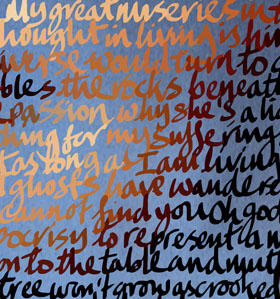 My great miseries in t
thought in living is him
iverse would turn to s
bles the rocks beneath
e passion why she's a ha
thing for my suffering
t as long as I am living
d ghosts have wanders
cannot find you Oh god
pocrisy to represent a n
on to the table and mutt
tree won't grow as crooked